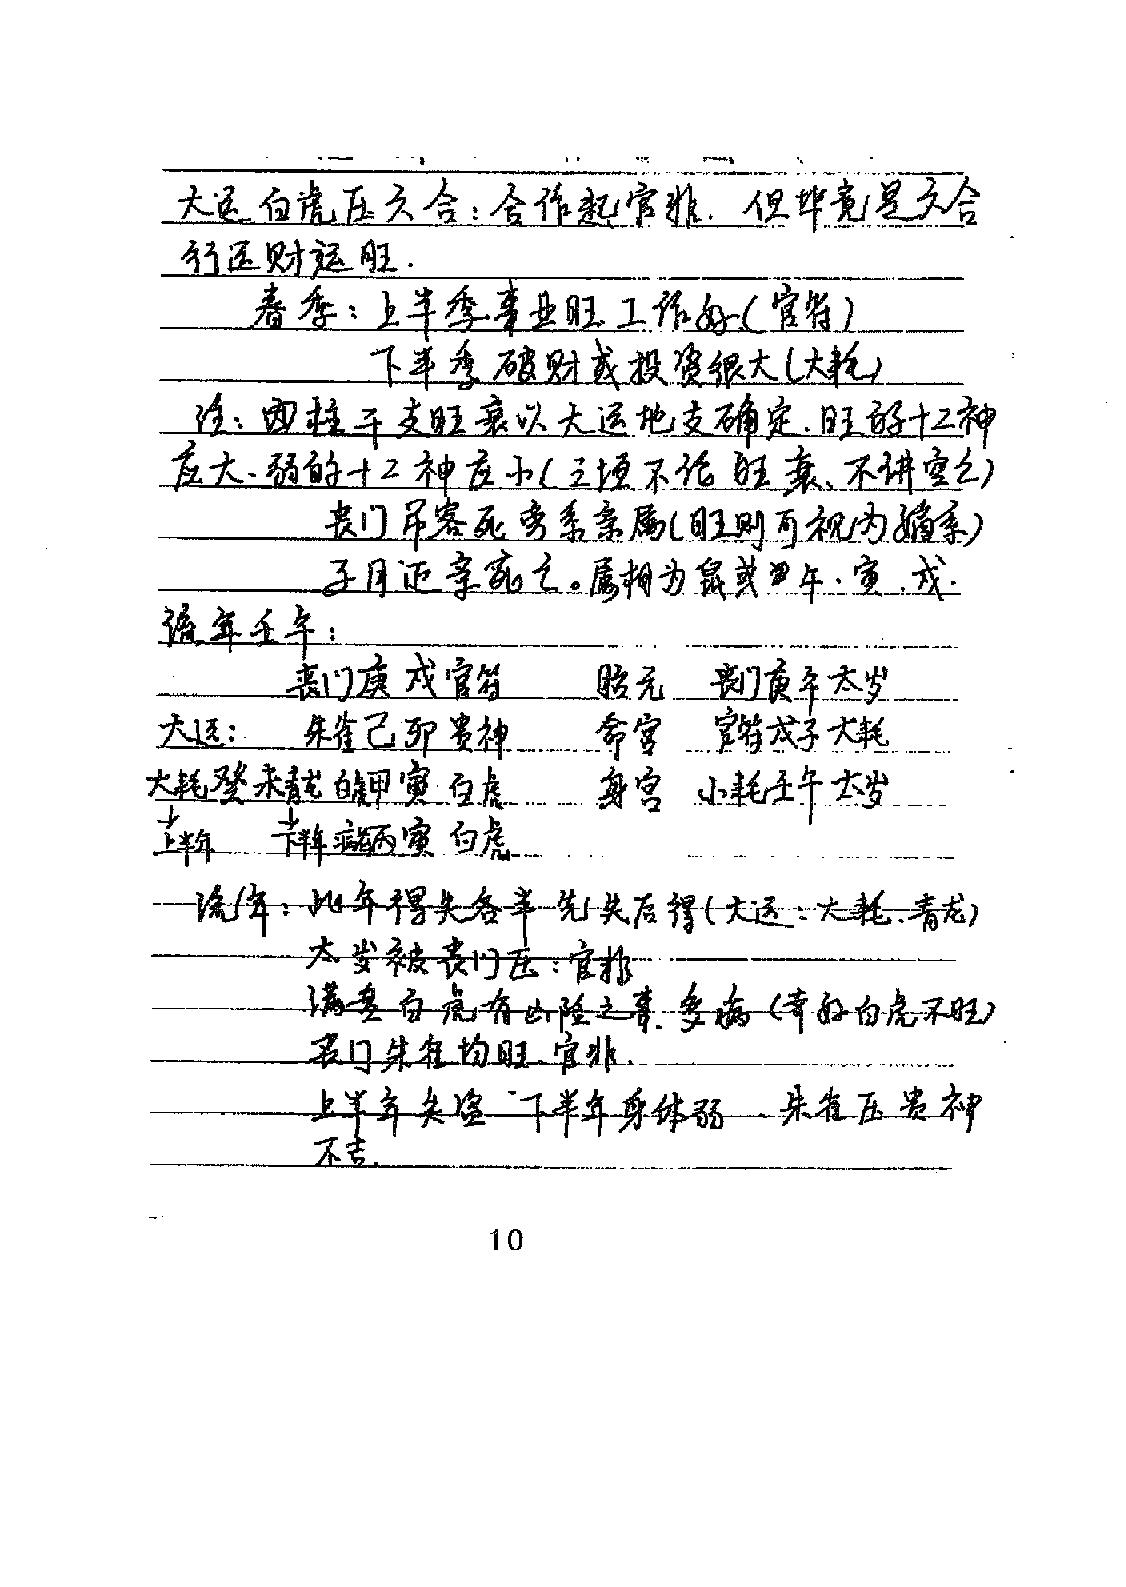 大运白虎压六合：合作起官非．但毕竟是六合
行运财运旺．
春季：上半季事业旺、工作好（官符）
下半季破财或投资很大（大耗）
注：四柱干支旺衰以大运地支确定．旺的十二神
应大、弱的十二神应小（三垣不论旺衰、不讲空亡）
丧门吊客死旁系亲属（旺则可视为嫡系）
子月近亲死亡。属相为鼠或 午．寅．戌．
流年壬午：
丧门庚戌官符 胎元 丧门庚午太岁
大运： 朱雀己卯贵神 命宫 官符戊子大耗
大耗癸未青龙 白虎甲寅白虎 身宫 小耗壬午太岁
上半年 下半年 丙寅白虎
流年：此年得失各半 先失后得（大运：大耗、青龙）
太岁被丧门压：官非
满盘白虎有凶险之事．多病（幸好白虎不旺）
丧门朱雀均旺、官非．
上半年失盗 下半年身体弱 、朱雀压贵神
不吉．
10